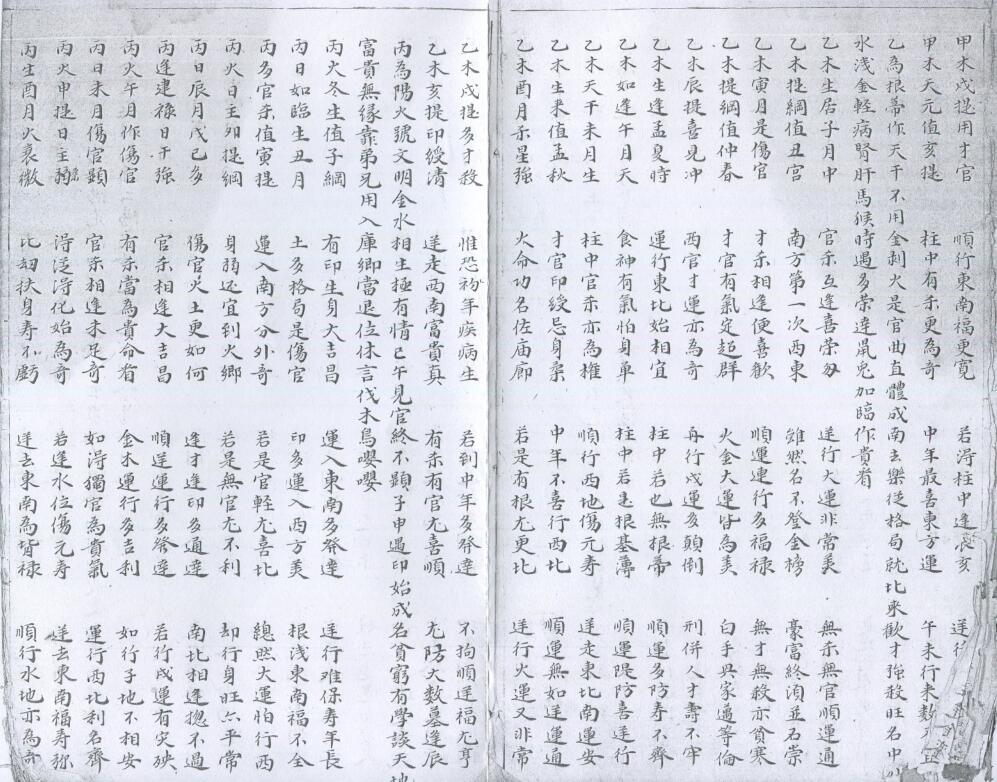 甲木戌提用才官 順行東南福更寬 若浔柱中逢 亥 逆行
甲木天元值亥提 柱中有杀更為奇 中年最喜東方運 午未行来数
乙為根荄作天干不用金剥火是官曲直體成南去樂從格局就比来歡才強殺旺名中
水浅金輕病腎肝馬候時遇多荣達鼠兎加臨作貴看
乙木生居子月中 官杀互逢喜荣 逆行火運非常美 無杀無官順運通
乙木提綱值丑宫 南方第一次西東 雖然名不登金榜 豪富終須並石崇
乙木寅月是傷官 才杀相逢便喜歡 順運連行多福禄 無才無殺亦貧寒
乙木提綱值仲春 才官有氣定超群 火金大運皆為美 白手興家邁等倫
乙木辰提喜見冲 西官才運亦為奇 再行戌運多顛倒 刑併人才壽不牢
乙木生逢孟夏時 運行東北始相宜 柱中若也無根蒂 順運多防寿不齊
乙木如逢午月天 食神有氣怕身單 柱中若是根基薄 順運隄防喜逆行
乙木天干未月生 柱中官杀亦為權 順行西地傷元寿 逆走東北南運安
乙木生来值孟秋 才官印綬忌身柔 中年不喜行西北 順運無如逆運通
乙木酉月杀星強 火命功名佐庙廊 若是有根尤更比 逆行火運又非常
乙木戌提多才殺 惟恐初年疾病生 若到中年多發達 不拘順逆福尤亨
乙木亥提印綬清 逆走西南富貴真 有杀有官尤喜順 尤防大数墓逢辰
丙為陽火號文明金水相生極有情巳午見官終不顕子申遇印始成名貧窮有學談天地
富貴無緣靠弟兄用入庫鄉當退位休言伐木鳥嚶嚶
丙火冬生值子綱 有印生身大吉昌 運入東南多發達 逆行难保寿年長
丙日如臨生丑月 土多格局是傷官 印多運入西方美 根浅東南福不全
丙多官杀值寅提 運入南方分外奇 若是官輕尤喜比 總然大運怕行西
丙火日主卯提綱 身弱还宜到火鄉 若是無官尤不利 却行身旺亦平常
丙日辰月戊己多 傷官火土更如何 逢才逢印多通達 南北相逢摠不過
丙逢建禄日干強 官杀相逢大吉昌 順逆運行多發達 若行戌運有灾殃
丙火午月作傷官 有杀當為貴命看 金水運行多吉利 如行子地不相安
丙日未月傷官顕 官杀相逢未足奇 如浔獨官為貴氣 運行西北利名齊
丙火申提日主弱 浔 浔化始為奇 若逢水位傷元寿 逆去東南福寿弥
丙生酉月火衰微 比刼扶身寿不虧 逆去東南為皆禄 順行水地亦為奇